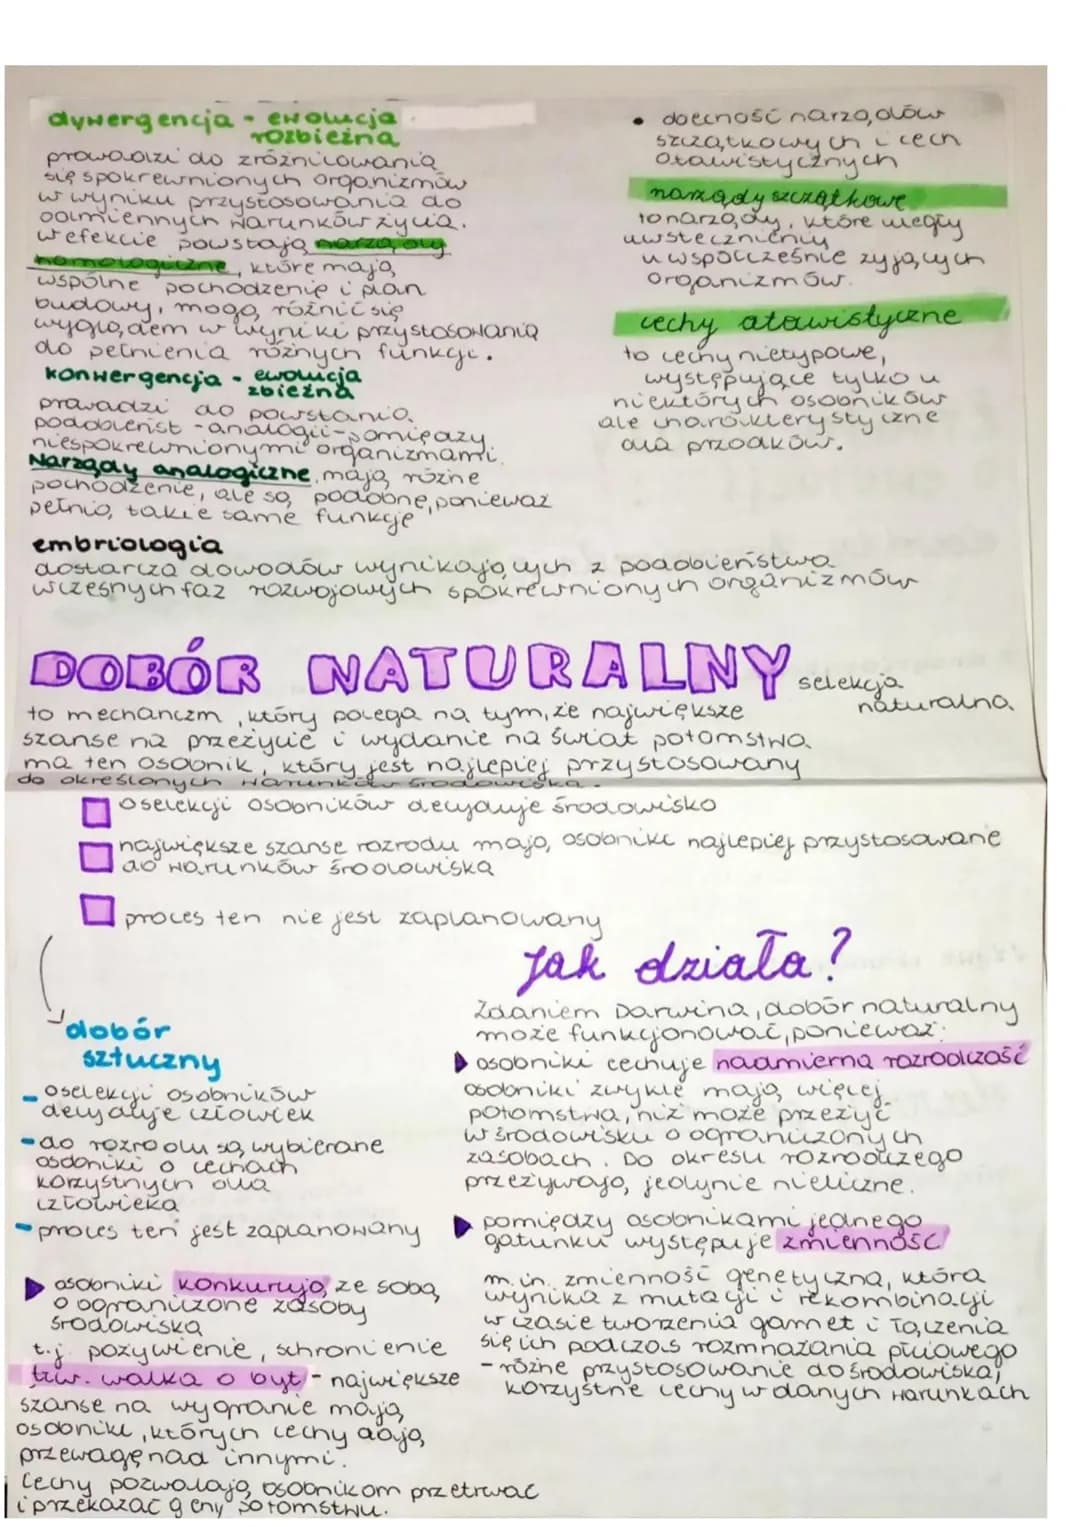 dywergencja - ewolucja
rozbieżna
prowadzi do zróżnicowania
się spokrewnionych organizmów
w wyniku przystosowania do
odmiennych warunków życia.
w efekcie powstają narządy
homologiczne, które mają
wspólne pochodzenie i plan
budowy, mogą różnić się
wyglądem w wyniki przystosowania
do pełnienia różnych funkcji.
konwergencja - ewolucja
zbieżna
prowadzi do powstania
podobieńst - analogii - pomiędzy
niespokrewnionymi organizmami.
Narządy analogiczne, mają różne
pochodzenie, ale są podobne, ponieważ
pełnią takie same funkcje
embriologia
dostarcza dowodów wynikających z podobieństwa
wczesnych faz rozwojowych spokrewnionych organizmów
• obecność narządów
szczątkowych i cech
atawistycznych
narządy szczątkowe
to narządy, które uległy
uwstecznieniu
u współcześnie żyjących
organizmów.
cechy atawistyczne
to cechy nietypowe,
występujące tylko u
niektórych osobników
ale charakterystyczne
dla przodków.
DOBÓR NATURALNY selekcja
naturalna
to mechanizm, który polega na tym, że największe
szanse na przeżycie i wydanie na świat potomstwa
ma ten osobnik, który jest najlepiej przystosowany
do określonych warunków środowiska.
o selekcji osobników decyduje środowisko
największe szanse rozrodu mają osobniki najlepiej przystosowane
do warunków środowiska
proces ten nie jest zaplanowany
dobór
sztuczny
- o selekcji osobników
decyduje człowiek
- do rozrodu są wybierane
osobniki o cechach
korzystnych dla
człowieka
- proces ten jest zaplanowany
Jak działa?
Zdaniem Darwina, dobór naturalny
może funkcjonować, ponieważ:
osobniki cechuje nadmierna rozrodczość
osobniki zwykle mają więcej
potomstwa, niż może przeżyć
w środowisku o ograniczonych
zasobach. Do okresu rozrodczego
przeżywają jedynie nieliczne.
pomiędzy osobnikami jednego
gatunku występuje zmienność
m.in. zmienność genetyczna, która
wynika z mutacji i rekombinacji
w czasie tworzenia gamet i łączenia
się ich podczas rozmnażania płciowego
- różne przystosowanie do środowiska,
korzystne cechy w danych warunkach
osobniki konkurują ze sobą
o ograniczone zasoby
środowiska
t.j. pożywienie, schronienie
tzw. walka o byt - największe
szanse na wygranie mają
osobniki, których cechy dają
przewagę nad innymi.
Cechy pozwalają osobnikom przetrwać
i przekazać geny potomstwu.